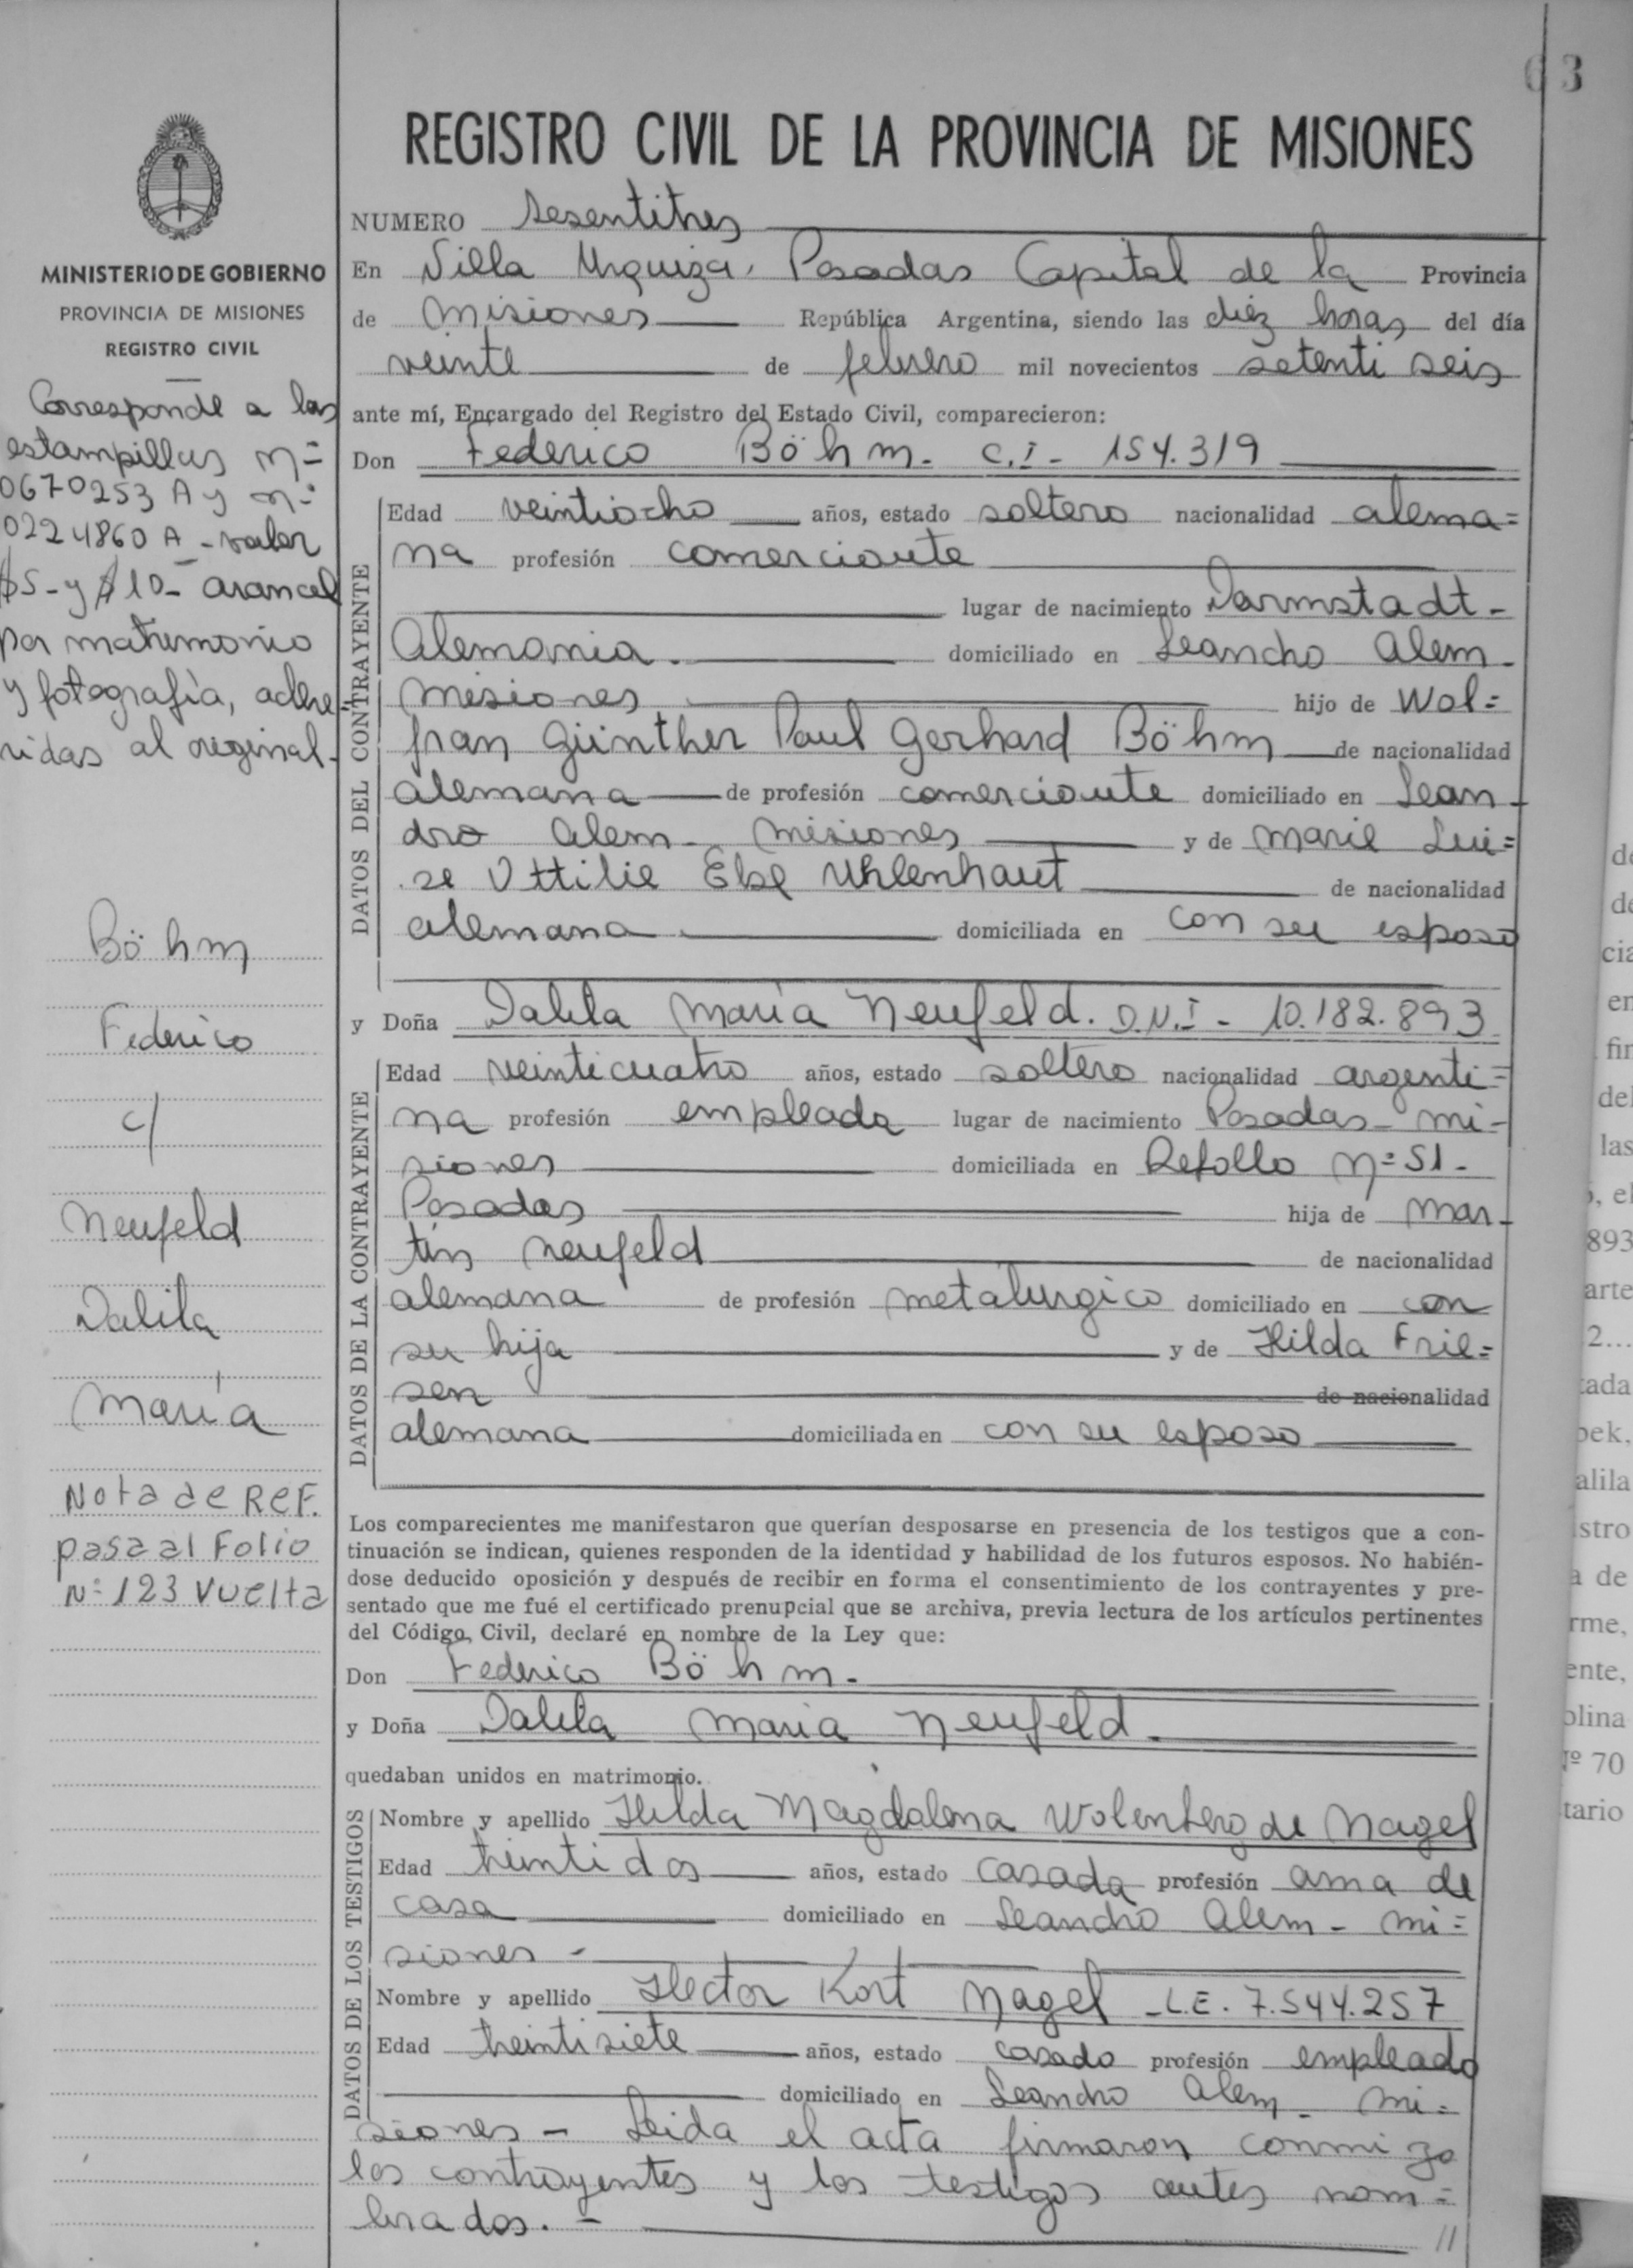 63
REGISTRO CIVIL DE LA PROVINCIA DE MISIONES
MINISTERIO DE GOBIERNO
PROVINCIA DE MISIONES
REGISTRO CIVIL
Corresponde a las
estampillas nº
0670253 A y nº
0224860 A - valor
$5 - y $10 - arancel
por matrimonio
y fotografía, adhe=
ridas al original -
Böhm
Federico
c/
Neufeld
Dalila
María
Nota de Ref.
pasa al Folio
Nº 123 Vuelta
NUMERO sesentitres
En Villa Urquiza, Posadas Capital de la Provincia
de Misiones República Argentina, siendo las diez horas del día
veinte de febrero mil novecientos setenti seis
ante mí, Encargado del Registro del Estado Civil, comparecieron:
Don Federico Böhm - C.I - 154.319
DATOS DEL CONTRAYENTE
Edad veintiocho años, estado soltero nacionalidad alema=
na profesión comerciante
lugar de nacimiento Darmstadt -
Alemania. domiciliado en Leandro Alem -
Misiones hijo de Wol=
fran Günther Paul Gerhard Böhm de nacionalidad
alemana de profesión comerciante domiciliado en Lean-
dro Alem - Misiones y de Marie Lui=
se Ottilie Else Uhlenhaut de nacionalidad
alemana domiciliada en con su esposo
y Doña Dalila María Neufeld. D.N.I - 10.182.893
DATOS DE LA CONTRAYENTE
Edad veinticuatro años, estado soltera nacionalidad argenti=
na profesión empleada lugar de nacimiento Posadas - Mi-
siones domiciliada en Nº 51 -
Posadas hija de Mar-
tín Neufeld de nacionalidad
alemana de profesión metalurgico domiciliado en con
su hija y de Hilda Frie=
sen de nacionalidad
alemana domiciliada en con su esposo
Los comparecientes me manifestaron que querían desposarse en presencia de los testigos que a con-
tinuación se indican, quienes responden de la identidad y habilidad de los futuros esposos. No habién-
dose deducido oposición y después de recibir en forma el consentimiento de los contrayentes y pre-
sentado que me fué el certificado prenupcial que se archiva, previa lectura de los artículos pertinentes
del Código Civil, declaré en nombre de la Ley que:
Don Federico Böhm -
y Doña Dalila Maria Neufeld -
quedaban unidos en matrimonio.
DATOS DE LOS TESTIGOS
Nombre y apellido Hilda Magdalena de Nagel
Edad treintidos años, estado casada profesión ama de
casa domiciliado en Leandro Alem - Mi=
siones -
Nombre y apellido Hector Kort Nagel - L.E. 7.544.257
Edad treintisiete años, estado casado profesión empleado
domiciliado en Leandro Alem - Mi=
siones - Leida el acta firmaron conmigo
los contrayentes y los testigos antes nom=
brados. -
//
de
de
cia
en
fin
del
las
5, el
893
arte
2...
tada
bek,
alila
istro
a de
rme,
ente,
olina
Nº 70
tario